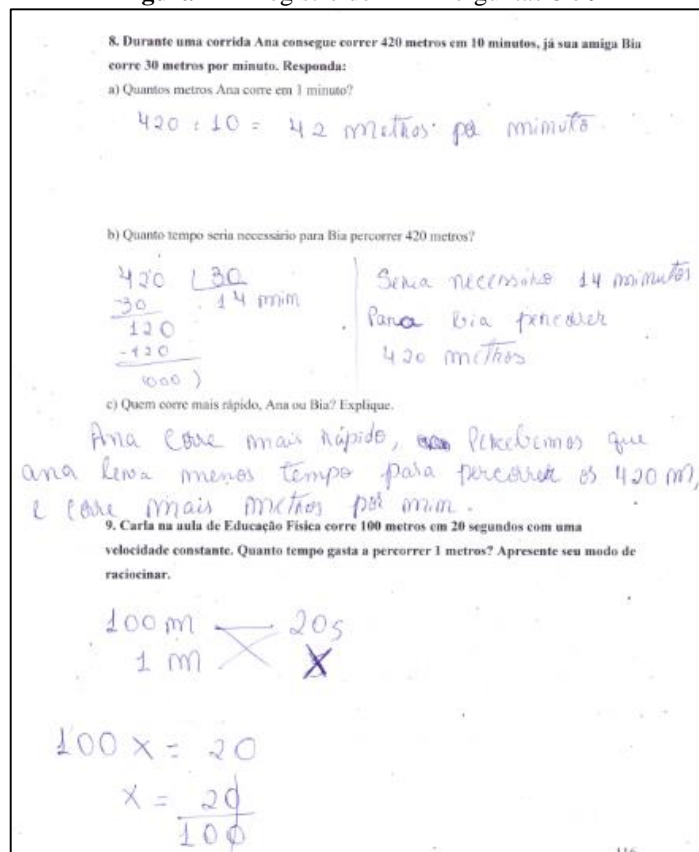 8. Durante uma corrida Ana consegue correr 420 metros em 10 minutos, já sua amiga Bia
corre 30 metros por minuto. Responda:
a) Quantos metros Ana corre em 1 minuto?
420 : 10 = 42 metros por minuto.
b) Quanto tempo seria necessário para Bia percorrer 420 metros?
420 30
-30 14 min
120
-120
(000)
Seria necessário 14 minutos
Para Bia percorrer
420 metros
c) Quem corre mais rápido, Ana ou Bia? Explique.
Ana corre mais rápido, Percebemos que
ana leva menos tempo para percorrer os 420 m,
e corre mais metros por min.
9. Carla na aula de Educação Física corre 100 metros em 20 segundos com uma
velocidade constante. Quanto tempo gasta a percorrer 1 metros? Apresente seu modo de
raciocinar.
100 m 20s
1 m X
100 X = 20
X = 20
100